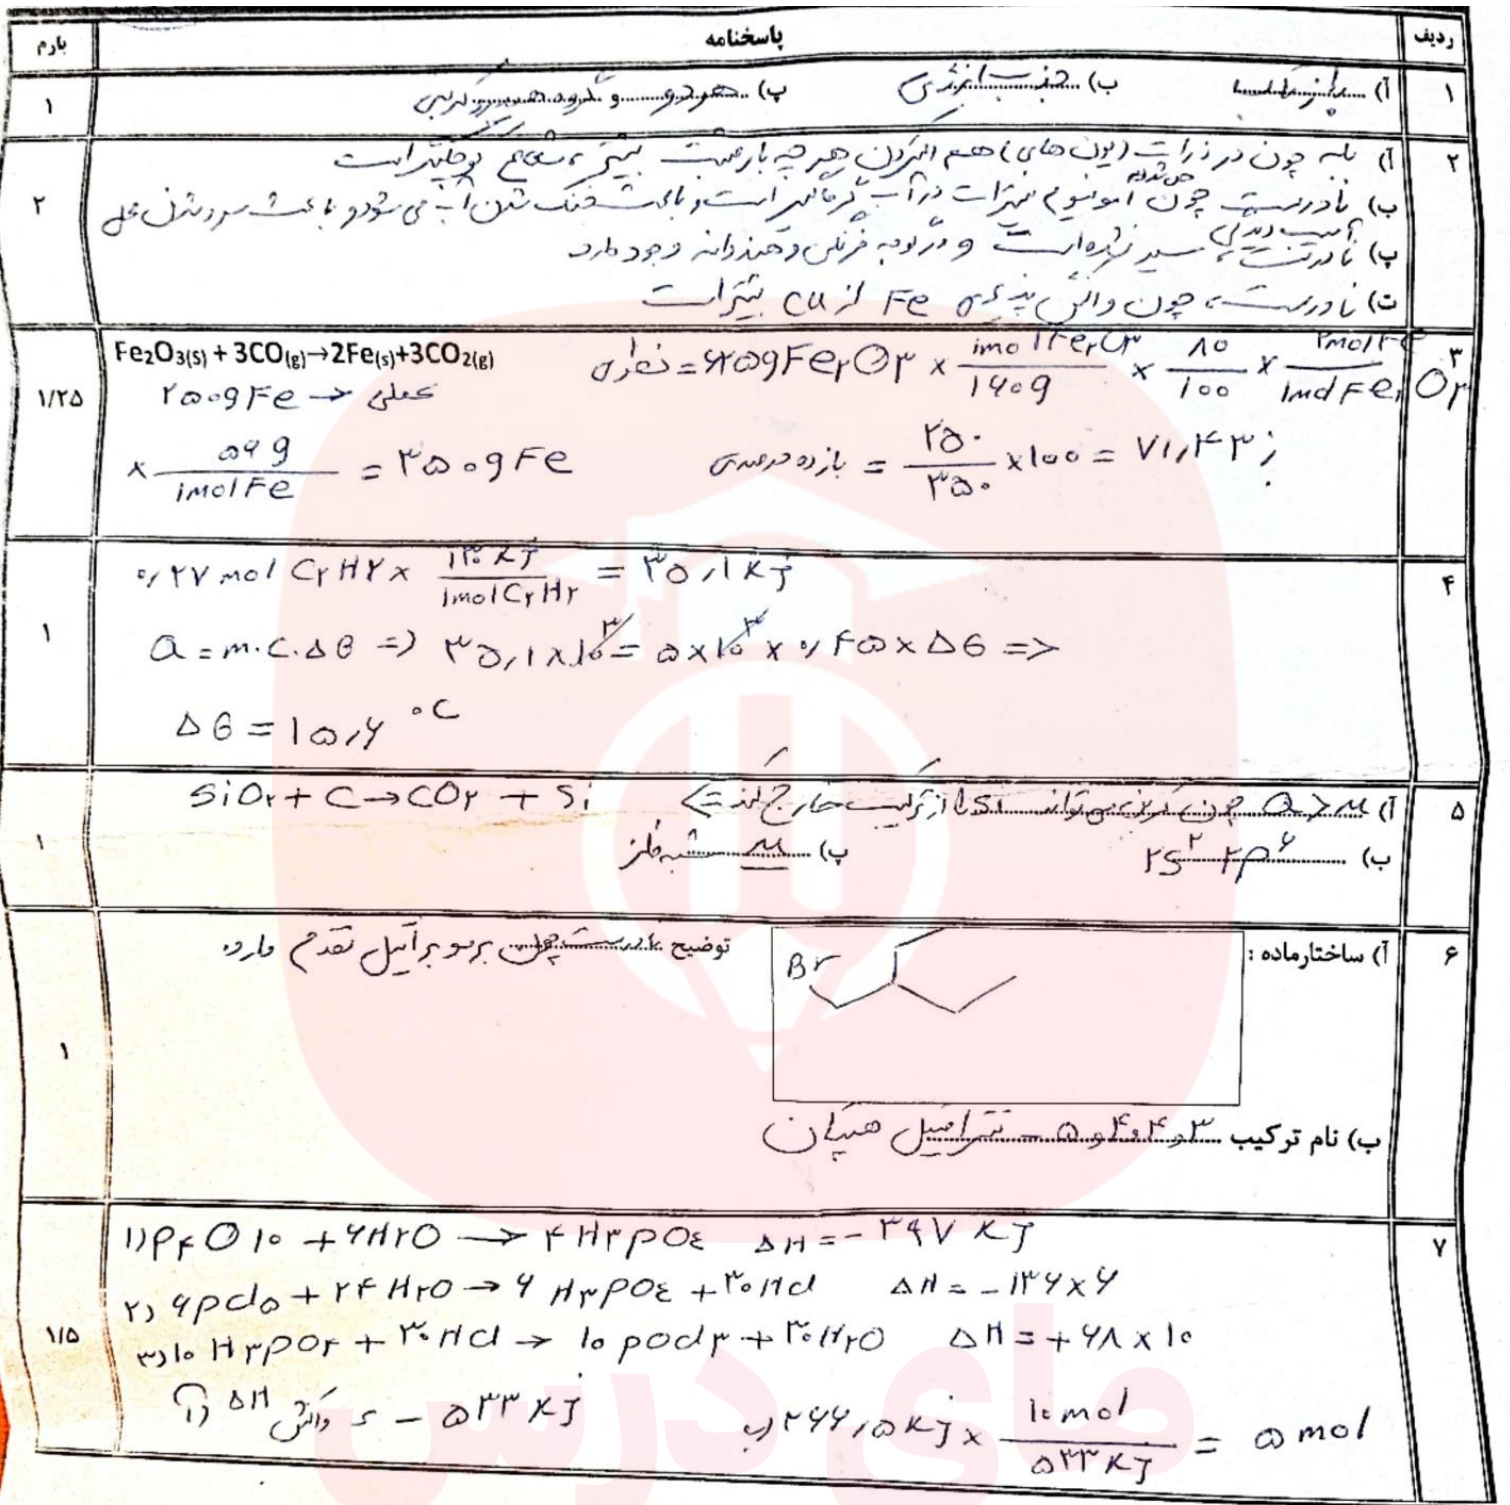 ردیف پاسخنامه بارم
۱ آ) پازسلب ب) جذب انرژی پ) هر دو و گروه هیدروکربنی ۱
۲ آ) بله چون در ذرات (یون های) هم الکترون هر چه بار مثبت بیشتر، شعاع کوچکتر است
ب) نادرست چون حل شدن آمونیوم نیترات در آب گرماگیر است و باعث خنک شدن آب می شود و باعث سرد شدن محل آسیب دیدگی
پ) نادرست، سیر نشده است و در گوجه فرنگی و هندوانه وجود دارد
ت) نادرست، چون واکنش پذیری Fe از Cu بیشتر است
۲
۳ Fe2O3(s) + 3CO(g)→2Fe(s)+3CO2(g) نظری = ۶۲۵gFe۲O۳ × 1molFe۲O۳ / 1۶۰g × ۸۰ / 1۰۰ × ۲molFe / 1molFe۲O۳
۲۵۰gFe → عملی
۱/۲۵
× ۵۶g / 1molFe = ۳۵۰gFe بازده درصدی = ۲۵۰ / ۳۵۰ ×1۰۰ = ۷۱,۴۳٪
۴ ۰/۲۷ mol C۲H۲ × ۱۳۰ kJ / 1molC۲H۲ = ۳۵,۱ kJ
۱ Q = m.C.Δθ => ۳۵,۱×۱۰۳ = ۵×۱۰۳ × ۰/۴۵×Δθ =>
Δθ = ۱۵,۶ °C
SiO۲ + C→CO۲ + Si
۵ ب) ۲s۲ ۲p۶ پ) شبه فلز
۱
۶ آ) ساختارماده : Br توضیح نادرست چون برمو بر آتیل تقدم دارد
۱
ب) نام ترکیب ۳و۴و۴و۵ – تترااتیل هپتان
۷ ۱) P۴O۱۰ + ۶H۲O → ۴H۳PO٤ ΔH = -۳۹۷ kJ
۲) ۶PCl۵ + ۲۴H۲O → ۶ H۳PO٤ + ۳۰HCl ΔH = -۱۳۶×۶
۳) ۱۰ H۳PO۴ + ۳۰HCl → ۱۰ POCl۳ + ۳۰H۲O ΔH = +۶۸ × ۱۰
۱/۵
آ) ΔH واکنش = -۵۳۳ kJ ب) ۲۶۶,۵ kJ × ۱۰mol / ۵۳۳ kJ = ۵ mol
مای درس